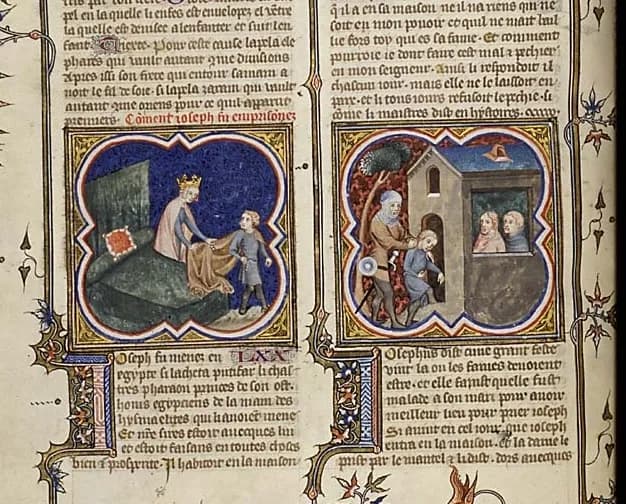 pel en la quelle li enfes est envelopez et vient
la quelle est demise a lenfanter et suit len
fant Pour ceste cause lapela
phares qui vault autant que divisions
Apres issi son frere qui en tour sa main a
noit le fil de soie si lapela zaram qui vault
autant que oriens pour ce qui apparut
premiers Coment ioseph fu emprisonez
oseph fu menez en LXX
egypte si lacheta putifar li chas
tres pharaon princes de son ost
homs egypciens de la main des
hysmaelites qui lavoient mene
Et nre sires estoit avecques lui
et estoit faisans en toutes choses
bien et prosperite Il habitoit en la maison
q il a en sa maison ne il na riens qui ne
soit en mon pouoir et qui ne mait bail
lie fors toy qui es sa fame Et comment
pourroie ie dont faire cest mal et pechier
en mon seigneur Ainsi li respondoit il
chascun iour mais elle ne le laissoit en
pais et il tous iours refusoit le pechie si
come li maistres dist en hystoires
Osephus dist cune grant feste
vint la ou les fames devoient
estre et elle fainst quelle fust
malade a son mari pour avoir
meilleur lieu pour prier ioseph
Si avint en cel iour que ioseph
entra en la maison la dame le
prist par le mantel et li dist dors avecques